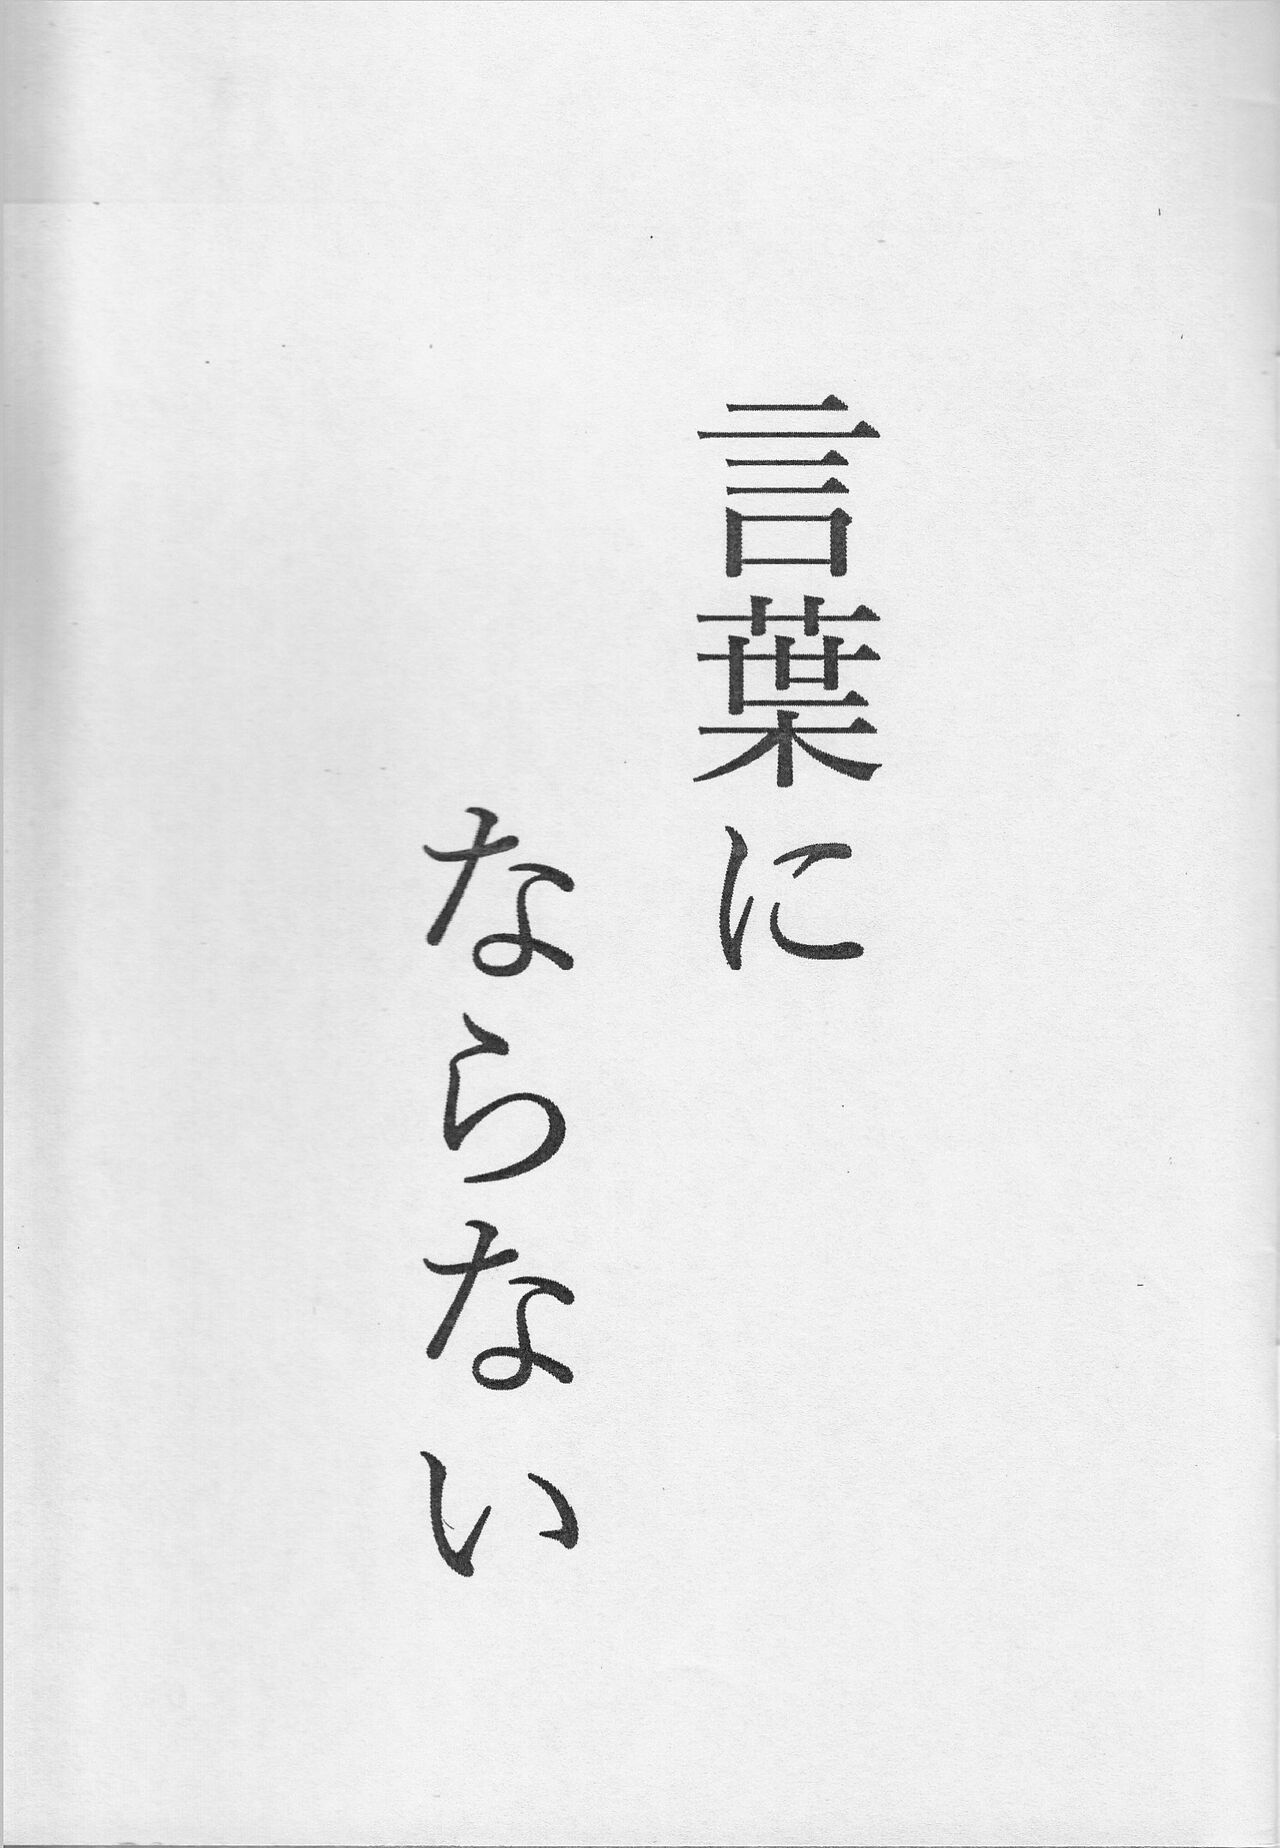 言葉に
ならない